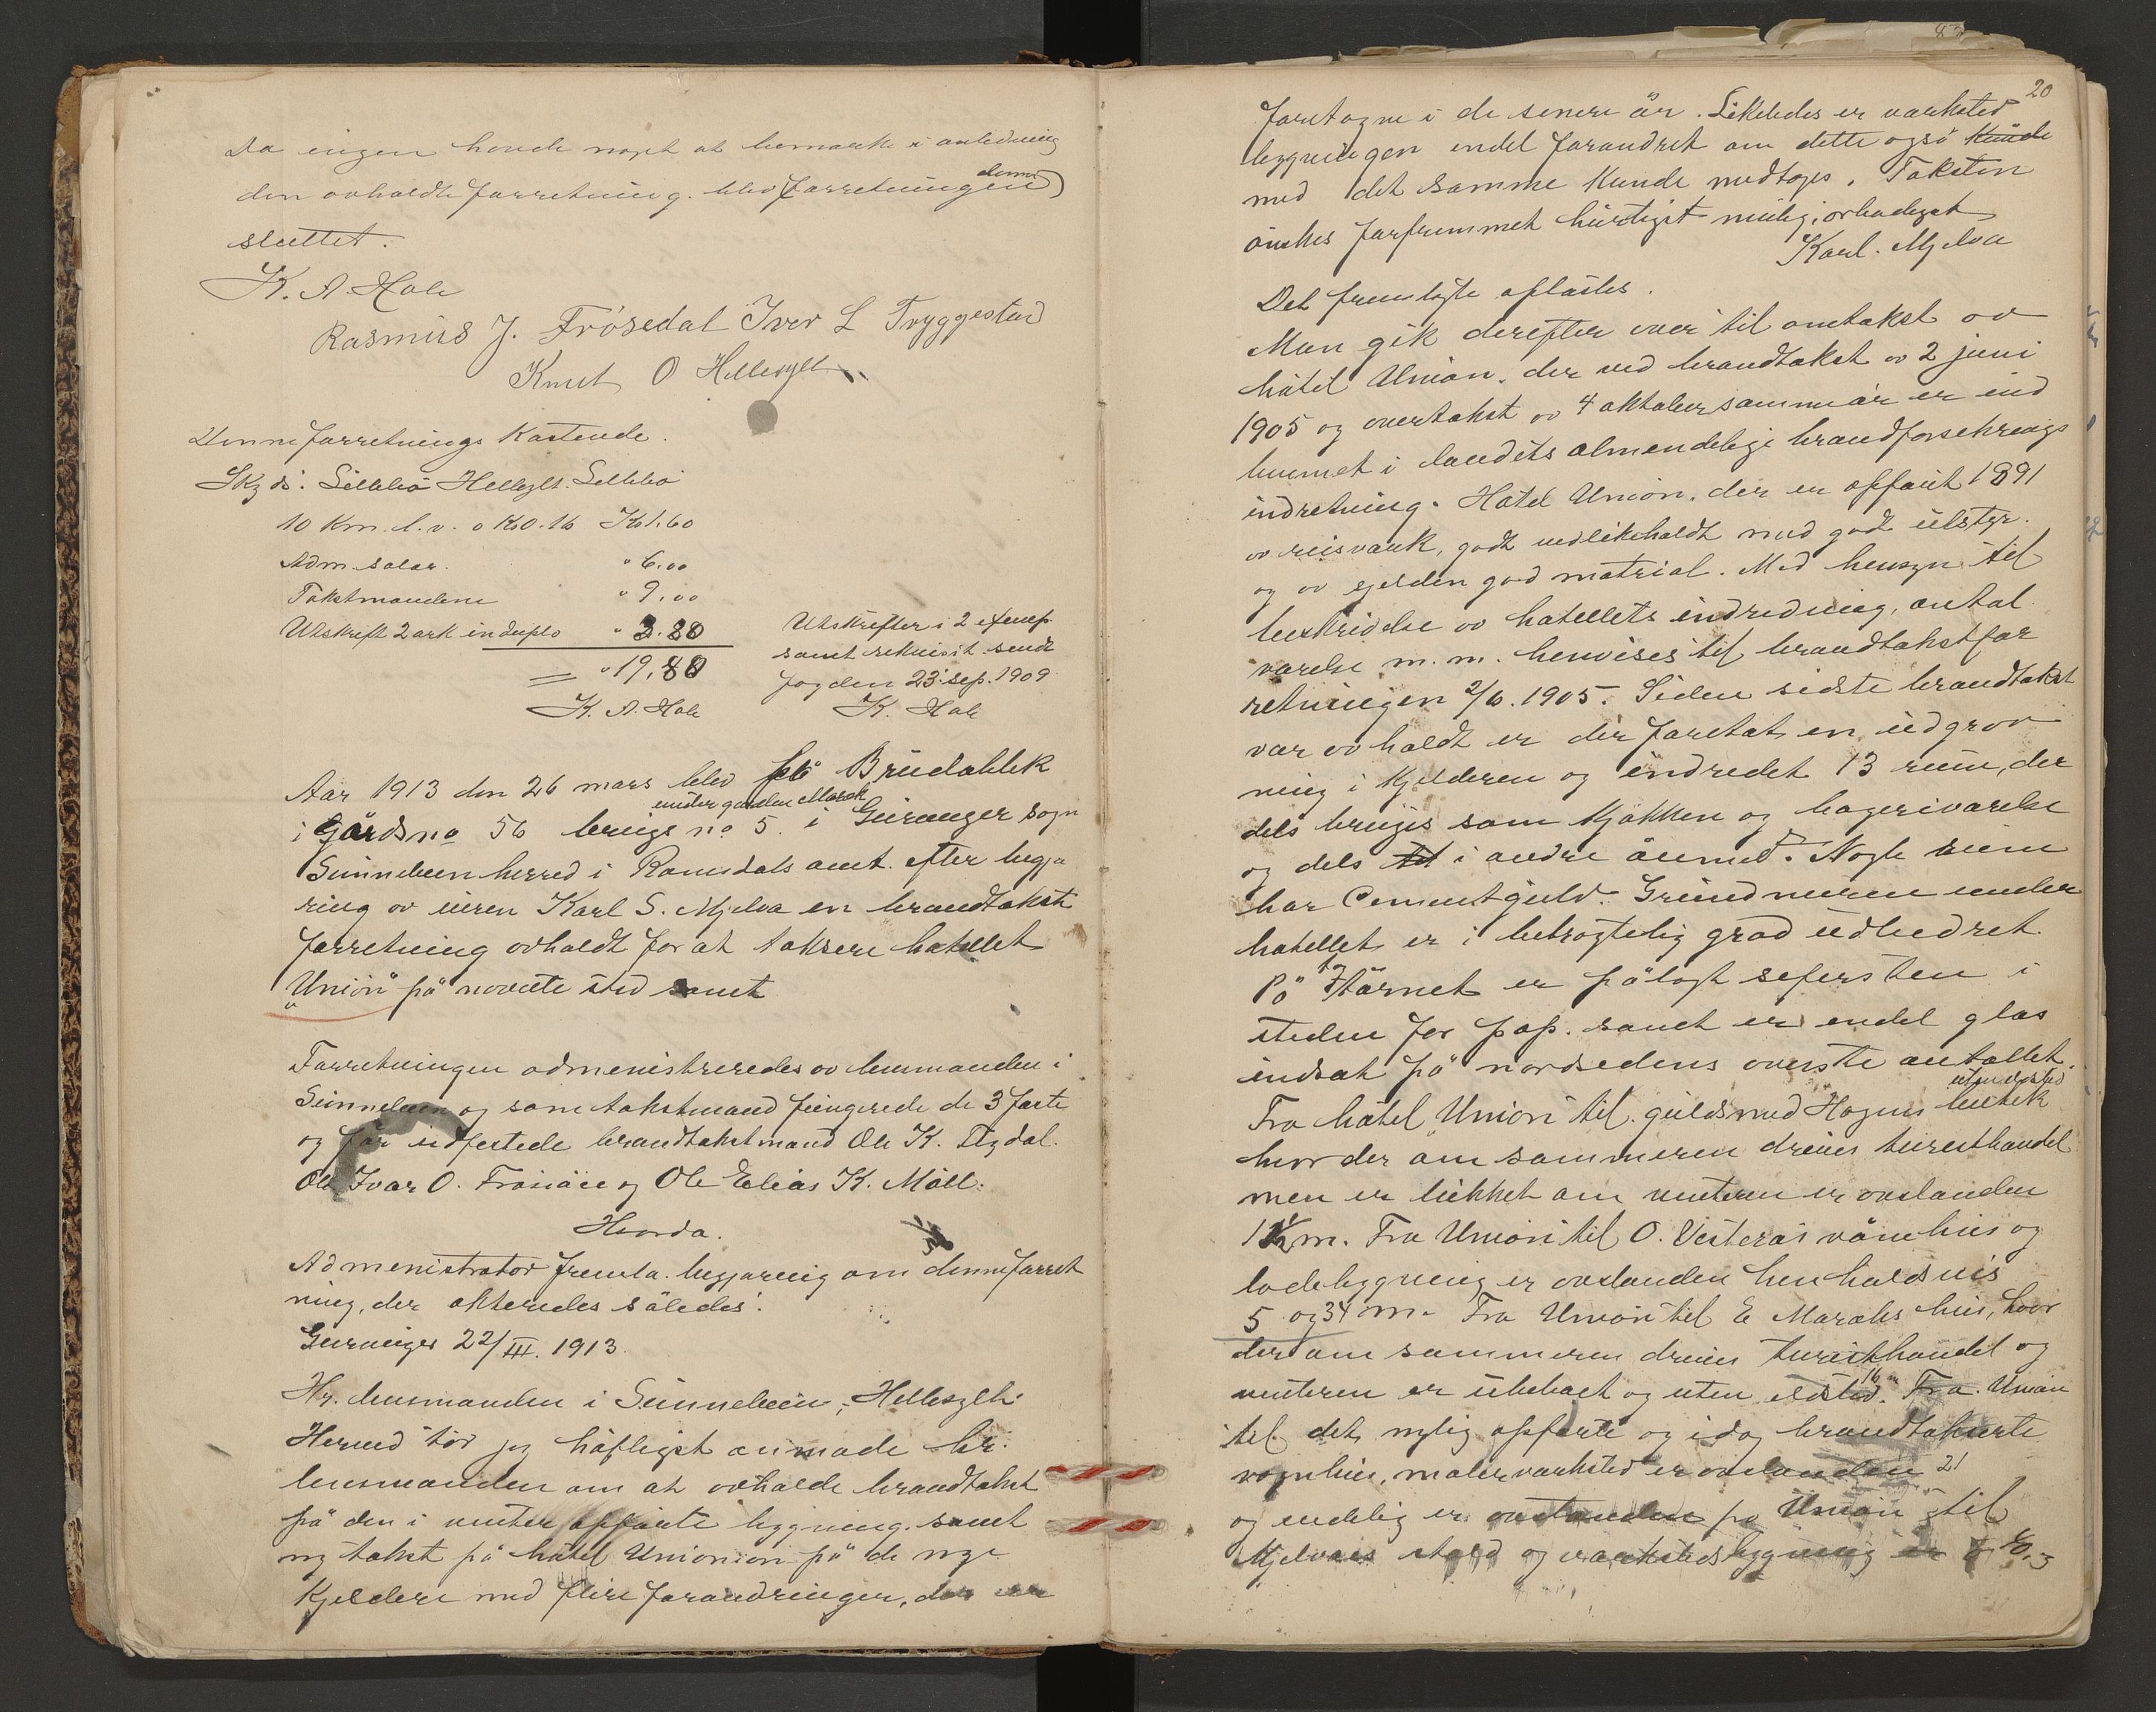 Da ingen havde noget at bemærke i anledning
den avholdte forretning. blev forretningen denne
sluttet.
K. A. Hole
Rasmus J. Frøsedal Iver L Tryggestad
Knut O Hellesylt
Denne forretnings kostende.
Skyds: Sellebö Hellsylt. Sellebö
10 Km. l.v. a K 0.16 Kr 1.60
Adm. salar. " 6.00
Takstmændene " 9.00
Utskrift 2 ark in duplo " 3.20
= " 19.80
K. A. Hole
Utskrifter i 2 exempl.
samt rekvisit. sendt
fogden 23. sep. 1909
K. Hole
Aar 1913 den 26 mars blev på Brudablik
under gaarden Marok
i Gårds no 56 brugs no 5. i Geiranger sogn
Sunnelven herred i Romsdals amt. efter begjæ
ring av eieren Karl S. Mjelva en brandtakst
forretning avholdt for at taksere hotellet
"Union" på novnte sted samt
Forretningen administreredes av lensmanden i
Sunnelven og som takstmænd fungerede de 3 faste
og før edfestede brandtakstmænd Ole K.
Ole Ivar O. og Ole Elias K. Möll.
Hvorda.
Administrator fremla. begjæring om denne forret
ning, der akteredes således:
Geiranger 22/III. 1913.
Hr. lensmanden i Sunnelven, Hellesylt.
Herved tör jeg höfligst anmode hr.
lensmanden om at avholde brandtakst
på den i vinter opførte bygning. samt
ny takst på hotel Unionion på de nye
Kjeldere med flere forandringer, der er
20
foretagne i de senere år. Likeledes er værksted
bygningen endel forandret om dette også kunde
med det samme kunde medtages. Taksten
önskes forfremmet hurtigst mulig, ærbødigst
Karl. Mjelva
Det fremlagte oplæstes.
Man gik derefter over til omtakst av
hotel Union. der ved brandtakst av 2 juni
1905 og overtakst av 4 oktober samme år er ind
lemmet i landets almindelige brandforsikrings
indretning. Hotel Union. der er opført 1891
av reisværk, godt vedlikeholdt med godt utstyr.
og av sjelden god matrial. Med hensyn til
beskrivelse av hotellets indredning, antal
værelse m.m. henvises til brandtakstfor
retningen 2/6. 1905. Siden sidste brandtakst
var avholdt er der foretat en udgrav
ning i Kjelderen og indredet 13 rum, der
dels bruges som Kjøkken og bageriværelse
og dels til i andre öiemed. Nogle rum
har Cementgulv. Grundmuren under
hotellet er i betragtelig grad udbedret.
På tårnet er pålagt skifersten i
steden for pap. samt er endel glas
indsat på nordsidens överste altan.
Fra hotel Union til guldsmed Hagens butik uten ildsted
hvor der om sommeren drives turisthandel
men er lukket om vinteren er avstanden
1 1/2 m. Fra Union til O. Vesterås våne hus og
ladebygning er avstanden henholdsvis
5 og 34 m. Fra Union til E Maraks hus, hvor
der om sommeren drives turisthandel og
vinteren er ubeboet og uten ildsted. 16 m Fra. Union
til det nylig opførte og idag brandtakserte
vognhus, malerværksted er avstanden 21
og endelig er avstanden fra Union til
Mjelvas stald og værkstedsbygning er